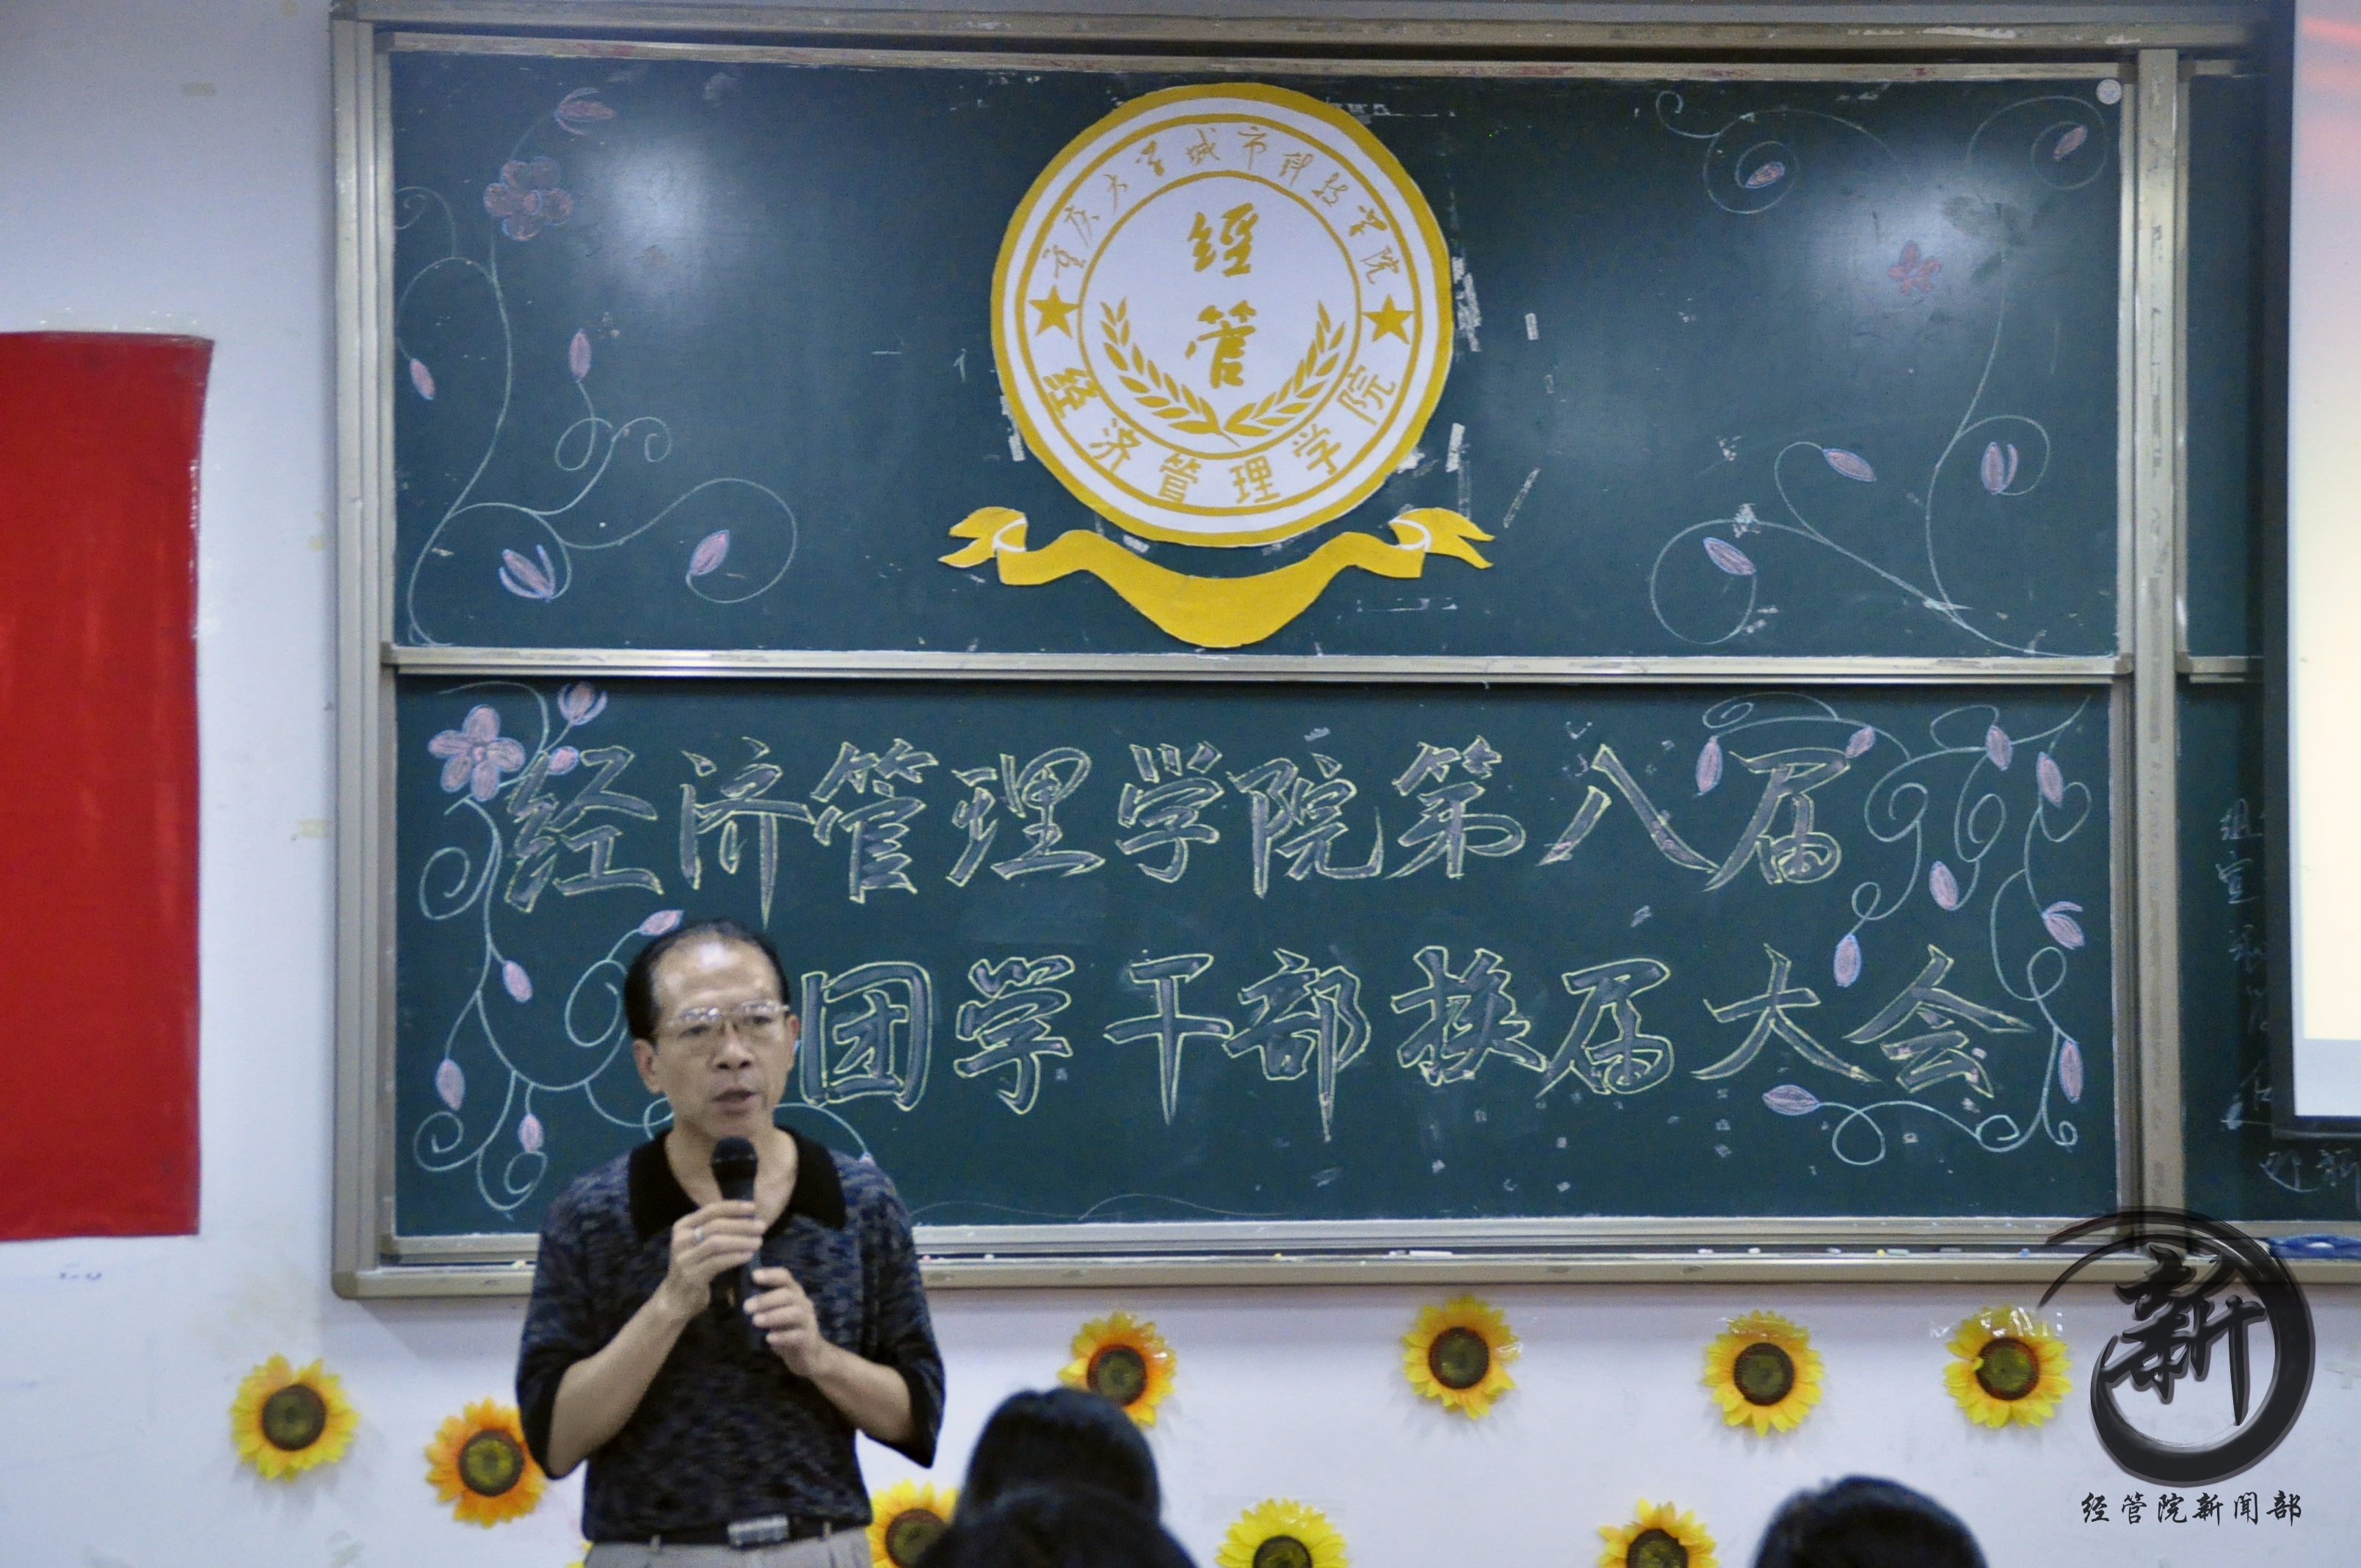 重庆大学城市科技学院
經
管
经济管理学院
经济管理学院第八届
团学干部换届大会
组
宣
新
经管院新闻部